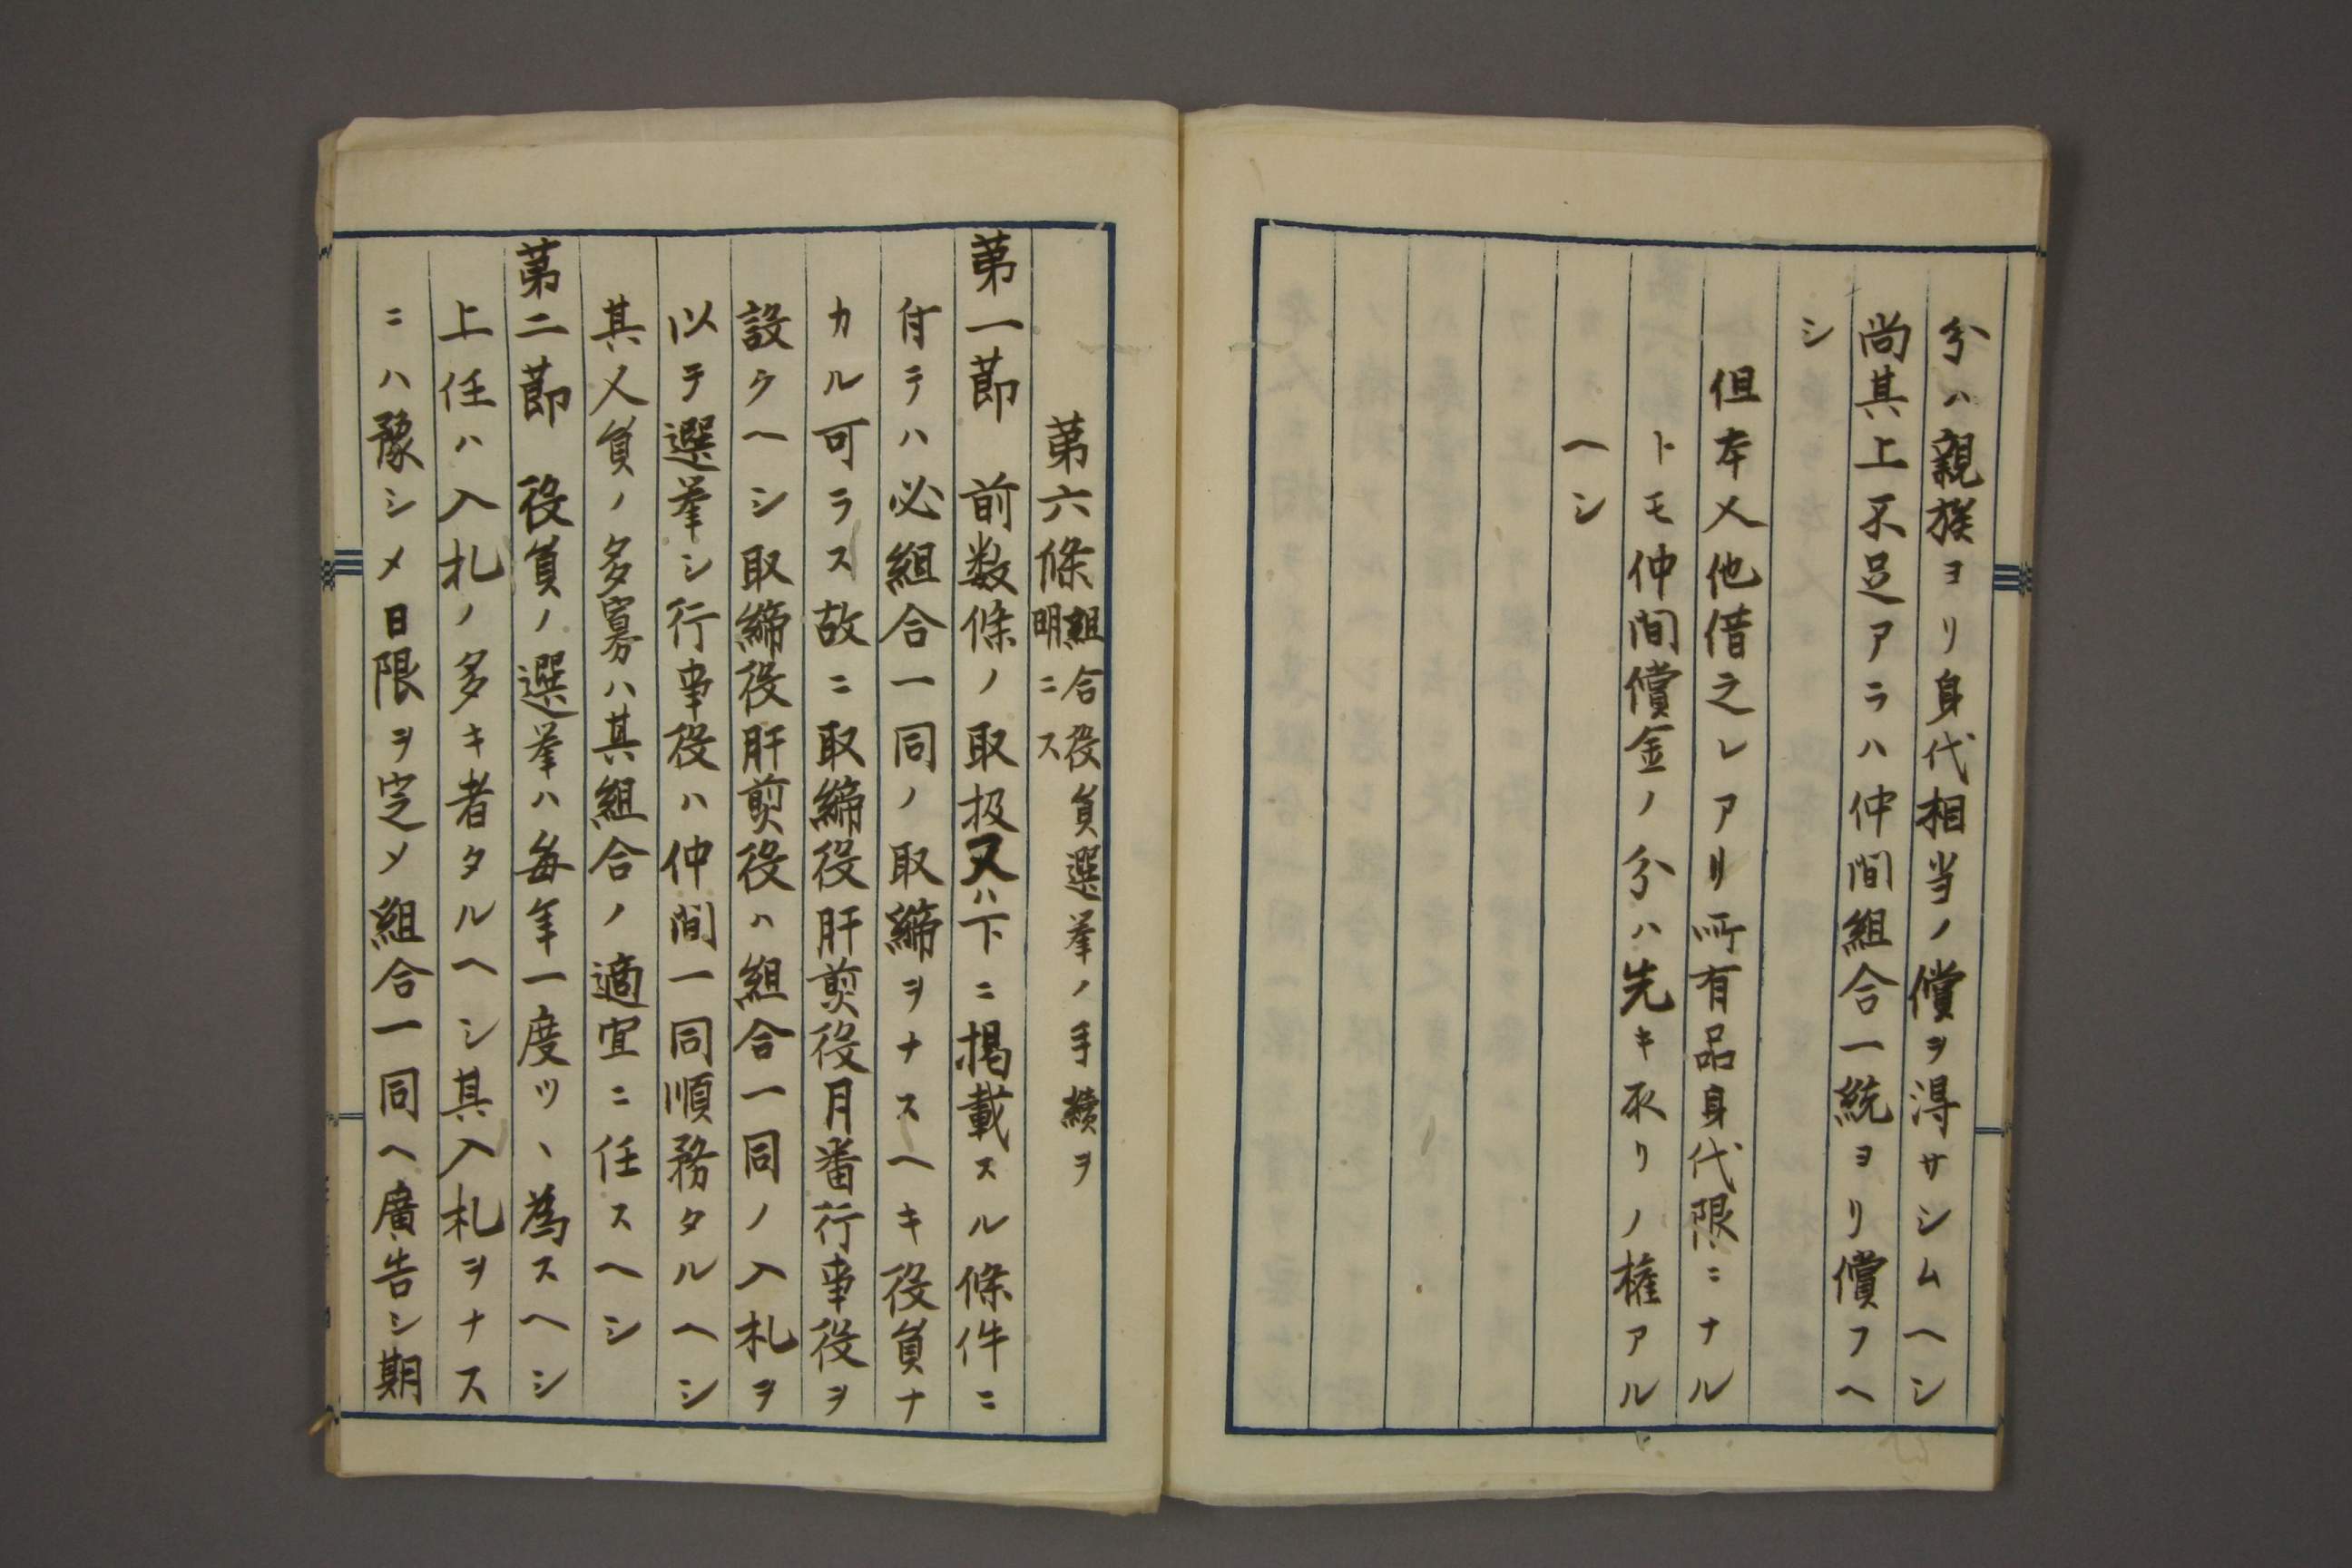 分ハ親族ヨリ身代相当ノ償ヲ得サシムヘシ
尚其上不足アラハ仲間組合一統ヨリ償フヘ
シ
但本人他借之レアリ所有品身代限ニナル
トモ仲間償金ノ分ハ先キ取リノ権アル
ヘシ
第六條組合役員選挙ノ手續ヲ
明ニス
第一節 前数條ノ取扱又ハ下ニ掲載スル條件ニ
付テハ必組合一同ノ取締ヲナスヘキ役員ナ
カル可ラス故ニ取締役肝煎役月番行事役ヲ
設クヘシ取締役肝煎役ハ組合一同ノ入札ヲ
以テ選挙シ行事役ハ仲間一同順務タルヘシ
其人員ノ多寡ハ其組合ノ適宜ニ任スヘシ
第二節 役員ノ選挙ハ毎年一度ツヽ為スヘシ
上任ハ入札ノ多キ者タルヘシ其入札ヲナス
ニハ豫シメ日限ヲ定メ組合一同ヘ廣告シ期